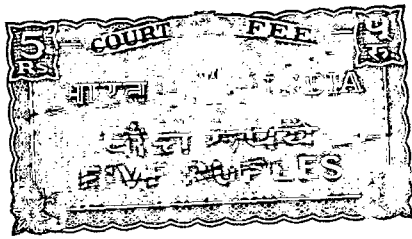 5 COURT FEE ५
Rs. रु.
भारत INDIA
पाँच रुपये
FIVE RUPEES